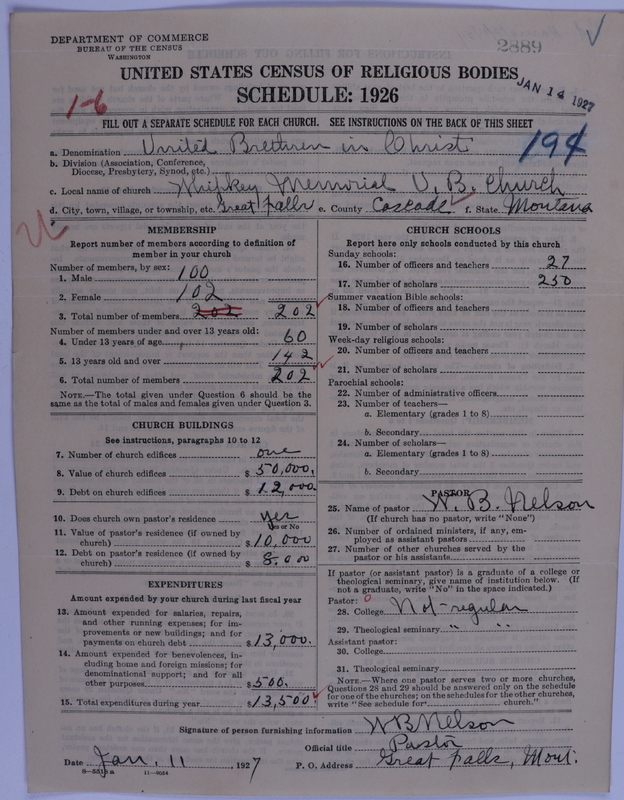 DEPARTMENT OF COMMERCE
BUREAU OF THE CENSUS
WASHINGTON
2889
UNITED STATES CENSUS OF RELIGIOUS BODIES
SCHEDULE: 1926
JAN 14 1927
1-6
FILL OUT A SEPARATE SCHEDULE FOR EACH CHURCH. SEE INSTRUCTIONS ON THE BACK OF THIS SHEET
194
a. Denomination United Brethren in Christ
b. Division (Association, Conference,
Diocese, Presbytery, Synod, etc.)
c. Local name of church Whipkey Memorial U. B. Church
d. City, town, village, or township, etc. Great Falls e. County Cascade f. State Montana
MEMBERSHIP
Report number of members according to definition of
member in your church
Number of members, by sex:
1. Male 100
2. Female 102
3. Total number of members 202 202
Number of members under and over 13 years old:
4. Under 13 years of age 60
5. 13 years old and over 142
6. Total number of members 202
NOTE.—The total given under Question 6 should be the
same as the total of males and females given under Question 3.
CHURCH BUILDINGS
See instructions, paragraphs 10 to 12
7. Number of church edifices one
8. Value of church edifices $50,000.
9. Debt on church edifices $12,000.
10. Does church own pastor's residence yes
Yes or No
11. Value of pastor's residence (if owned by
church) $10,000
12. Debt on pastor's residence (if owned by
church) $8.000
EXPENDITURES
Amount expended by your church during last fiscal year
13. Amount expended for salaries, repairs,
and other running expenses; for im-
provements or new buildings; and for
payments on church debt $13,000.
14. Amount expended for benevolences, in-
cluding home and foreign missions; for
denominational support; and for all
other purposes $500.
15. Total expenditures during year $13,500
CHURCH SCHOOLS
Report here only schools conducted by this church
Sunday schools:
16. Number of officers and teachers 27
17. Number of scholars 250
Summer vacation Bible schools:
18. Number of officers and teachers
19. Number of scholars
Week-day religious schools:
20. Number of officers and teachers
21. Number of scholars
Parochial schools:
22. Number of administrative officers
23. Number of teachers—
a. Elementary (grades 1 to 8)
b. Secondary
24. Number of scholars—
a. Elementary (grades 1 to 8)
b. Secondary
PASTOR
25. Name of pastor W. B. Nelson
(If church has no pastor, write "None")
26. Number of ordained ministers, if any, em-
ployed as assistant pastors
27. Number of other churches served by the
pastor or his assistants
If pastor (or assistant pastor) is a graduate of a college or
theological seminary, give name of institution below. (If
not a graduate, write "No" in the space indicated.)
Pastor: 0
28. College Not-regular
29. Theological seminary " "
Assistant pastor:
30. College
31. Theological seminary
NOTE.—Where one pastor serves two or more churches,
Questions 28 and 29 should be answered only on the schedule
for one of the churches; on the schedules for the other churches,
write "See schedule for church."
Signature of person furnishing information W B Nelson
Official title Pastor
Date Jan, 11 1927 P. O. Address Great Falls, Mont.
8—5518a 11—9054